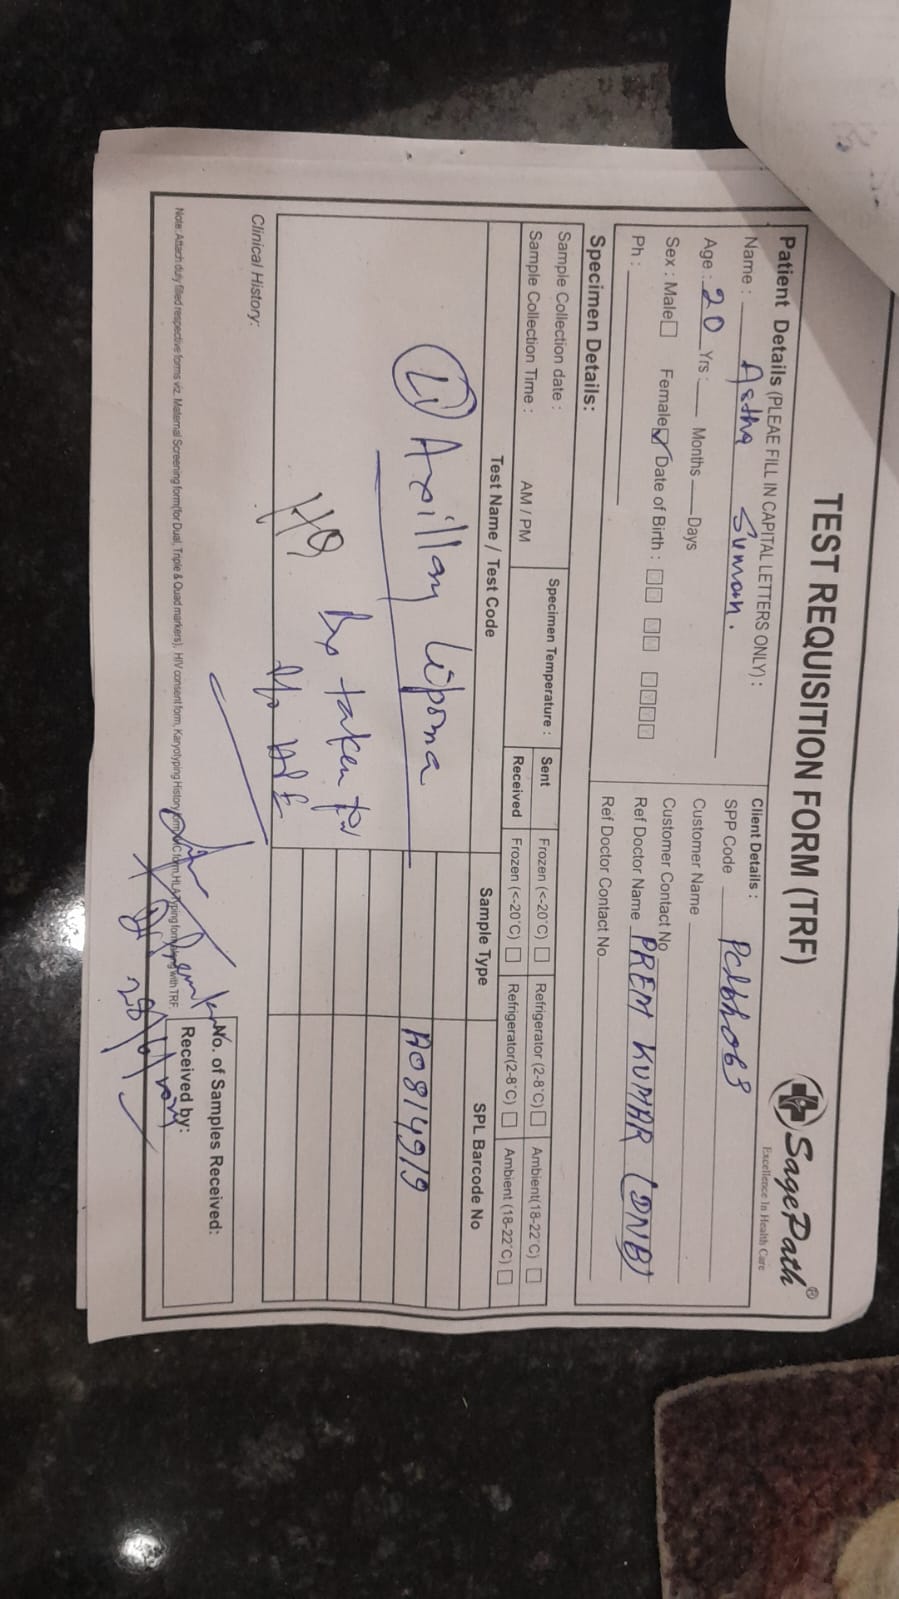 TEST REQUISITION FORM (TRF)
SagePath®
Excellence In Health Care
Patient Details (PLEAE FILL IN CAPITAL LETTERS ONLY) :
Name : Astha Suman.
Age : 20 Yrs : Months Days
Sex : Male Female Date of Birth :
Ph :
Client Details :
SPP Code
Customer Name
Customer Contact No
Ref Doctor Name PREM KUMAR (DNB)
Ref Doctor Contact No
Specimen Details:
Sample Collection date :
Sample Collection Time : AM / PM
Specimen Temperature :
Sent Frozen (<-20°C) Refrigerator (2-8°C) Ambient(18-22°C)
Received Frozen (<-20°C) Refrigerator(2-8°C) Ambient (18-22°C)
Test Name / Test Code Sample Type SPL Barcode No
Axillary Lipoma
A0814919
taken
Clinical History:
No. of Samples Received:
Received by:
Note: Attach duly filled respective forms viz. Maternal Screening form(for Dual, Triple & Quad markers), HIV consent form, Karyotyping History form, HLA typing form along with TRF